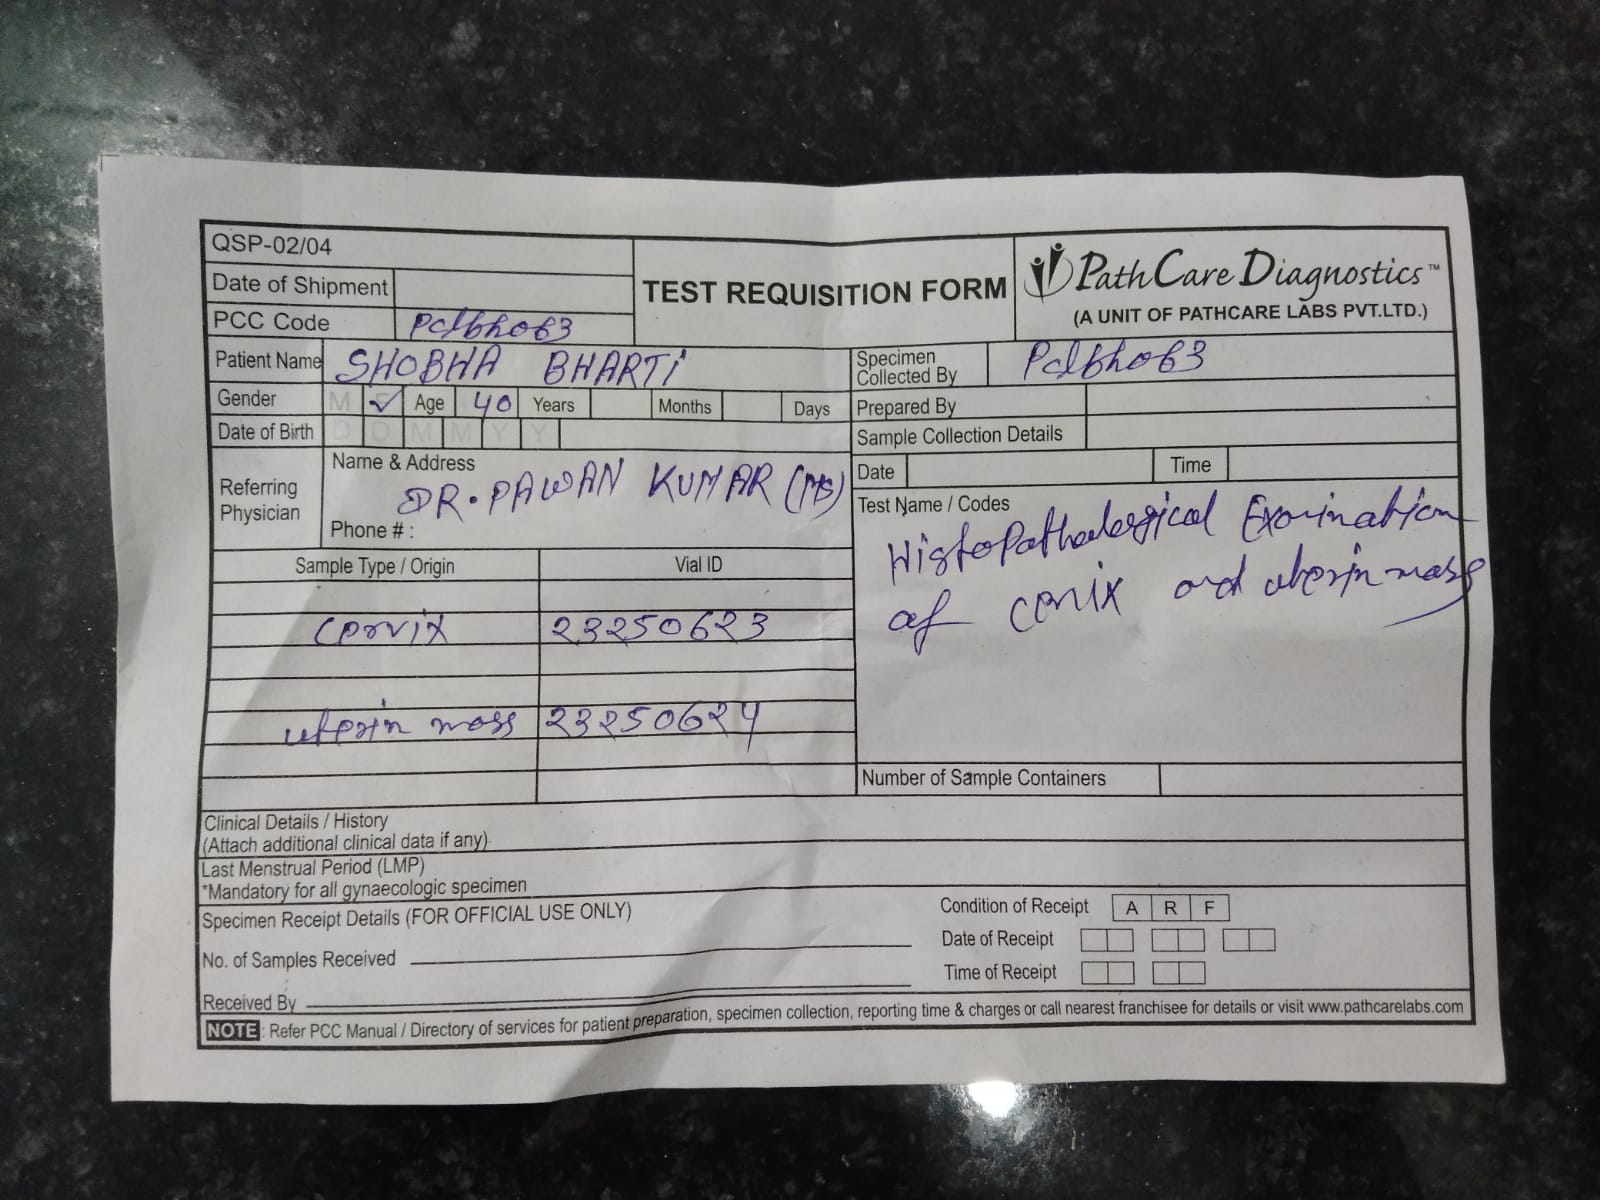 QSP-02/04
Date of Shipment
PCC Code Pclbh063
TEST REQUISITION FORM
PathCare Diagnostics™
(A UNIT OF PATHCARE LABS PVT.LTD.)
Patient Name SHOBHA BHARTi
Specimen Collected By Pclbh063
Gender M ✓ Age 40 Years Months Days
Prepared By
Date of Birth D D M M Y Y
Sample Collection Details
Referring Physician
Name & Address
DR. PAWAN KUMAR (MS)
Phone # :
Date Time
Test Name / Codes
HistoPathological Examination
of cervix and uterin mass
Sample Type / Origin Vial ID
cervix 23250623
uterin mass 23250624
Number of Sample Containers
Clinical Details / History
(Attach additional clinical data if any)
Last Menstrual Period (LMP)
*Mandatory for all gynaecologic specimen
Specimen Receipt Details (FOR OFFICIAL USE ONLY)
Condition of Receipt A R F
Date of Receipt
No. of Samples Received
Time of Receipt
Received By
NOTE : Refer PCC Manual / Directory of services for patient preparation, specimen collection, reporting time & charges or call nearest franchisee for details or visit www.pathcarelabs.com